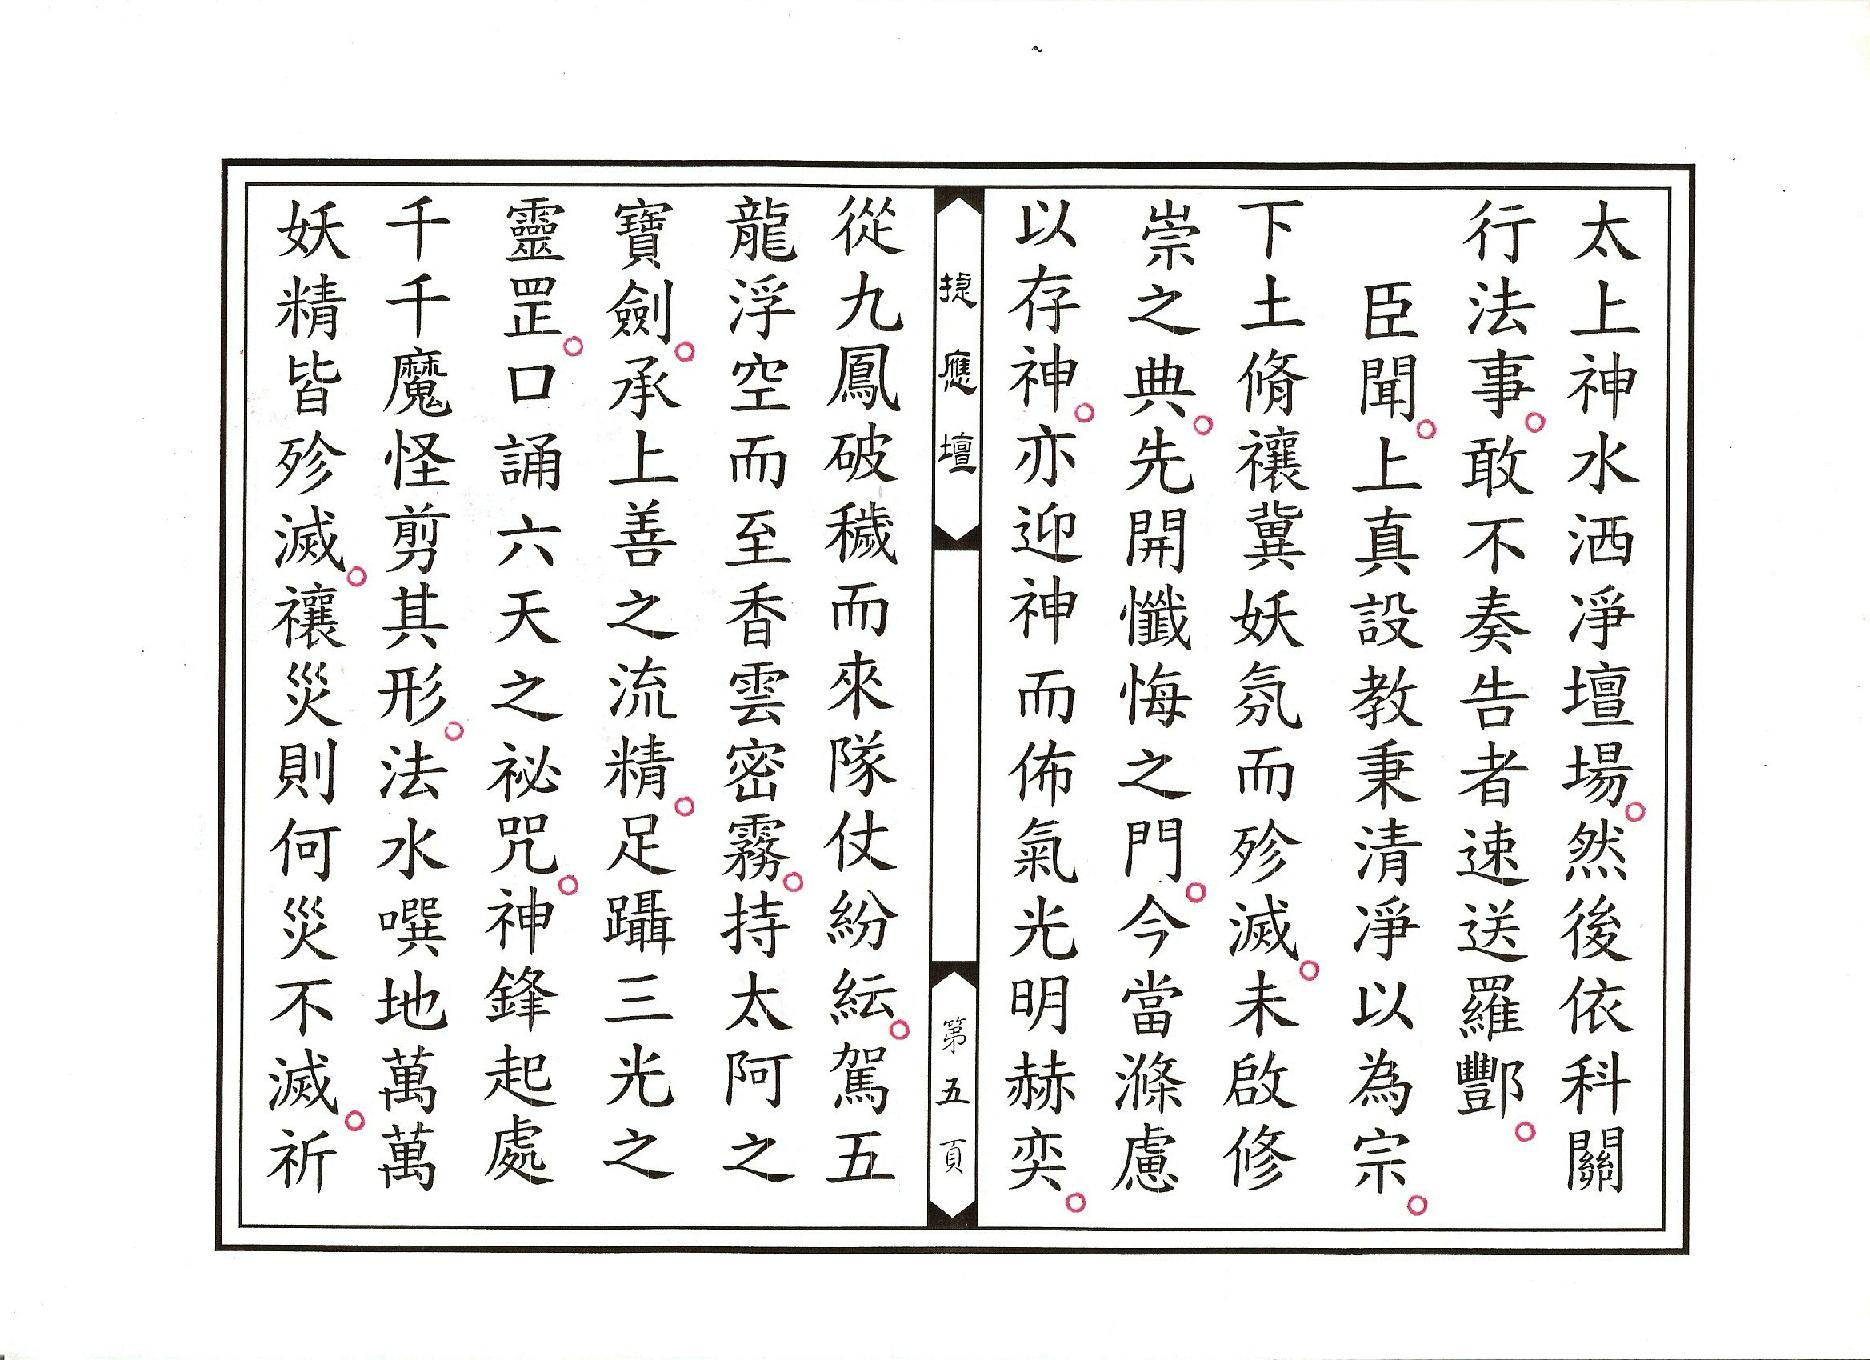 太上神水洒凈壇場。然後依科關
行法事。敢不奏告者速送羅酆。
臣聞。上真設教秉清凈以為宗。
下土脩禳冀妖氛而殄滅。未啟修
崇之典。先開懺悔之門。今當滌慮
以存神。亦迎神而佈氣光明赫奕。
捷應壇
第五頁
從九鳳破穢而來隊仗紛紜。駕五
龍浮空而至香雲密霧。持太阿之
寶劍。承上善之流精。足躡三光之
靈罡。口誦六天之祕咒。神鋒起處
千千魔怪剪其形。法水噀地萬萬
妖精皆殄滅。禳災則何災不滅。祈